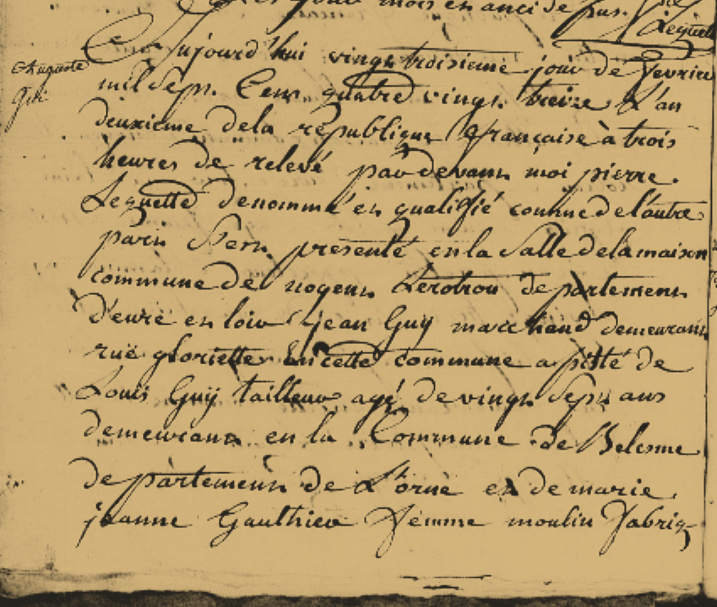 jour mois en an ci de sus.
Lequette
Auguste
Gui
Cejourd'hui vingt troisieme jour de fevrier
mil sept cent quatre vingt treize L'an
deuxieme de la république française à trois
heures de relevé pardevant moi pierre
Lequette denommé en qualifié comme de l'autre
part s'est presenté en la salle de la maison
commune de nogent Lerotrou departement
d'eure et loir jean Guy marchand demeurant
rue gloriette en cette commune assisté de
Louis Guy tailleur agé de vingt sept ans
demeurant en la Commune de Belesme
departement de L'orne et de marie
jeanne Gauthier femme moulin fabriq-